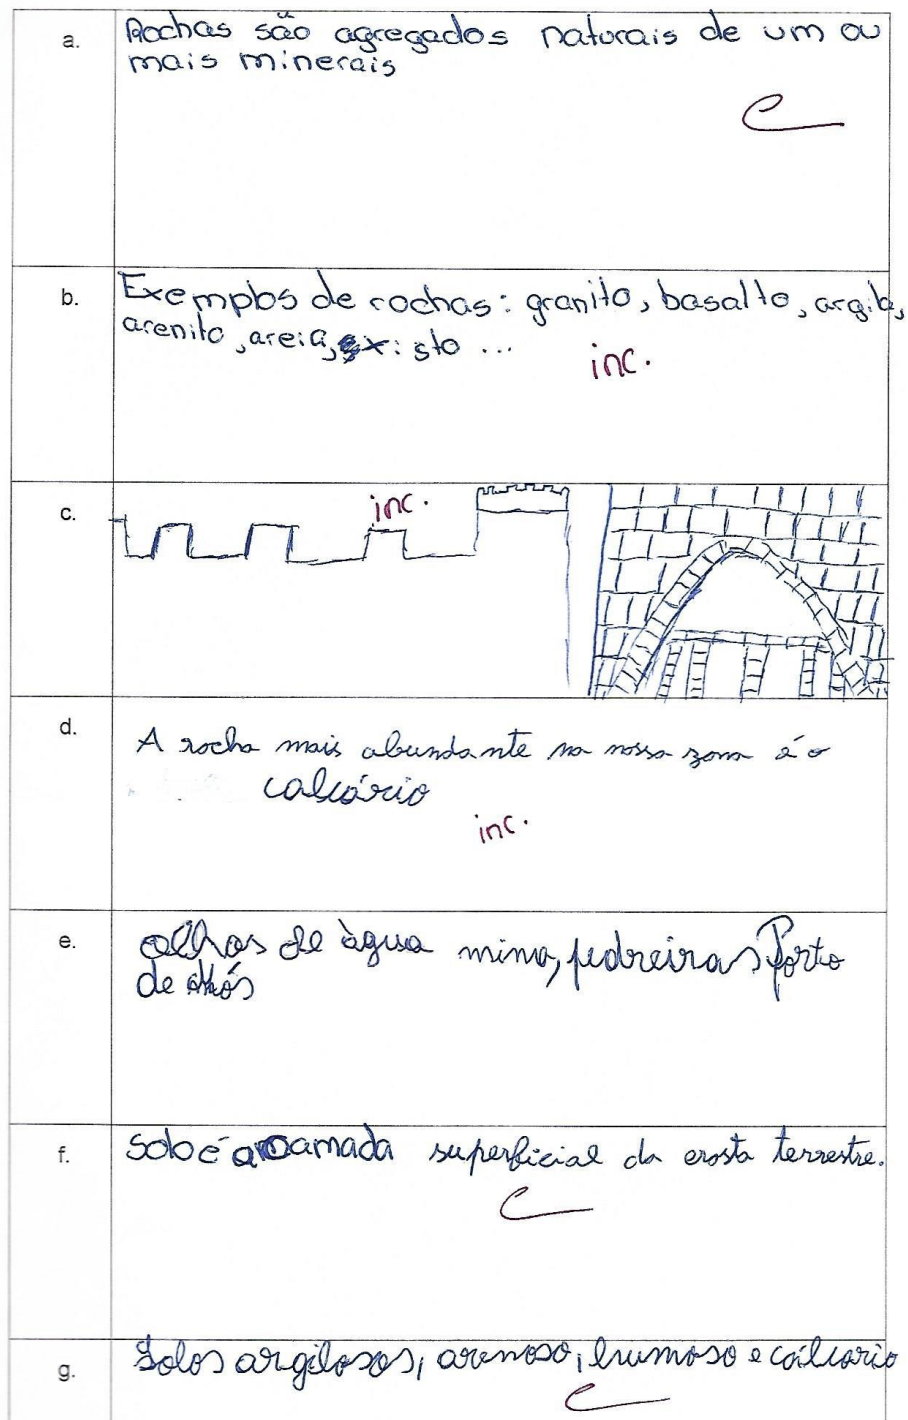 a. Rochas são agregados naturais de um ou
mais minerais
C
b. Exemplos de rochas: granito, basalto, argila,
arenito, areia, xisto ...
inc.
c. inc.
d. A rocha mais abundante na nossa zona é o
calcário
inc.
e. olhos de àgua mina, pedreiras Porto
de Mós
f. Solo é a camada superficial da crosta terrestre.
C
g. Solos argilosos, arenoso, humoso e cálcario
C